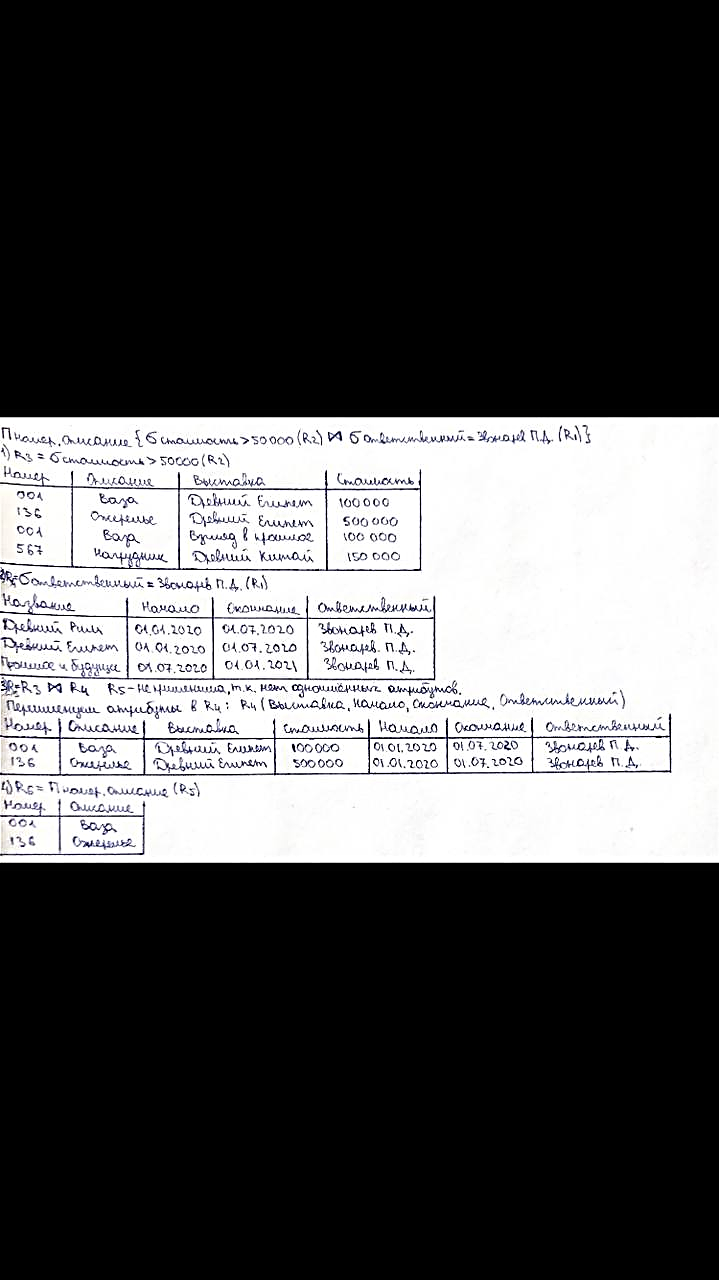 Π номер, описание {σ стоимость > 50000 (R2) ⋈ σ ответственный = Звонарев П.Д. (R1)}
1) R3 = σ стоимость > 50000 (R2)
Номер Описание Выставка Стоимость
001 Ваза Древний Египет 100000
136 Ожерелье Древний Египет 500000
001 Ваза Взгляд в прошлое 100 000
567 Нагрудник Древний Китай 150 000
2) R4 = σ ответственный = Звонарев П.Д. (R1)
Название Начало Окончание Ответственный
Древний Рим 01.01.2020 01.07.2020 Звонарев П.Д.
Древний Египет 01.01.2020 01.07.2020 Звонарев. П.Д.
Прошлое и будущее 01.07.2020 01.01.2021 Звонарев П.Д.
3) R5 = R3 ⋈ R4 R5 - не применима, т.к. нет одноимённых атрибутов.
Переименуем атрибуты в R4: R4 (Выставка, Начало, Окончание, Ответственный)
Номер Описание Выставка Стоимость Начало Окончание Ответственный
001 Ваза Древний Египет 100000 01.01.2020 01.07.2020 Звонарев П.Д.
136 Ожерелье Древний Египет 500000 01.01.2020 01.07.2020 Звонарев П.Д.
4) R6 = Π номер, описание (R5)
Номер Описание
001 Ваза
136 Ожерелье